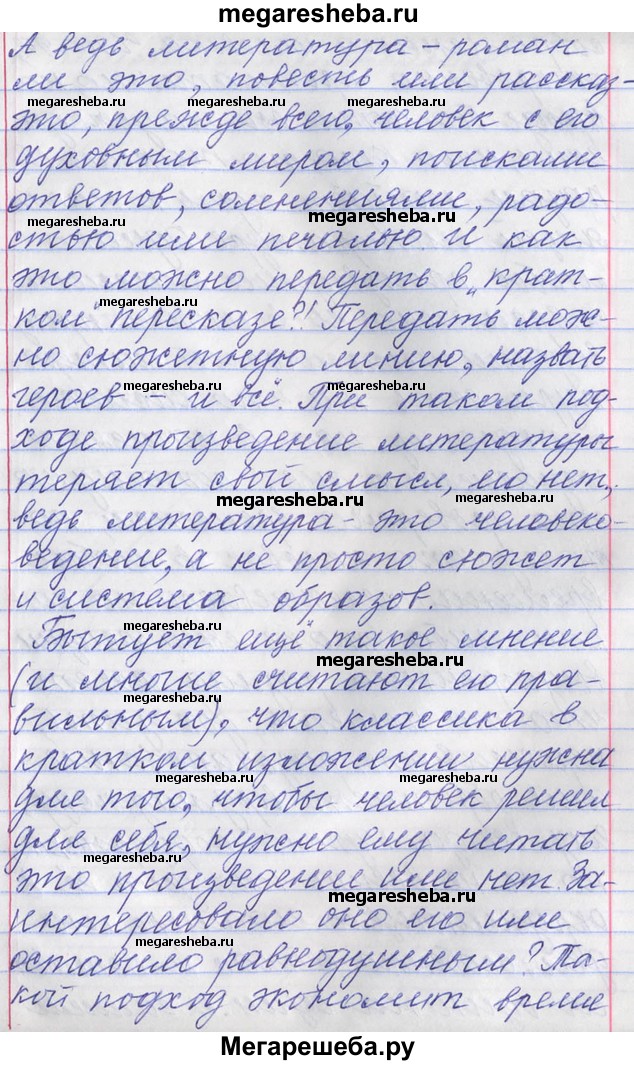 megaresheba.ru
А ведь литература – роман
ли это, повесть или рассказ-
megaresheba.ru megaresheba.ru megaresheba.ru
это, прежде всего, человек с его
духовным миром, поисками
ответов, сомнениями, радо-
megaresheba.ru megaresheba.ru
стью или печалью. И как
это можно передать в „крат-
megaresheba.ru
ком" пересказе?! Передать мож-
но сюжетную линию, назвать
megaresheba.ru megaresheba.ru
героев – и всё. При таком под-
ходе произведение литературы
теряет свой смысл, его нет,
megaresheba.ru megaresheba.ru
ведь литература – это человеко-
ведение, а не просто сюжет
и система образов.
Бытует ещё такое мнение
megaresheba.ru megaresheba.ru
(и многие считают его пра-
вильным), что классика в
кратком изложении нужна
megaresheba.ru megaresheba.ru
для того, чтобы человек решил
для себя, нужно ему читать
megaresheba.ru
это произведение или нет. За-
megaresheba.ru
интересовало оно его или
megaresheba.ru
оставило равнодушным? Та-
кой подход экономит время
megaresheba.ru
Мегарешеба.ру